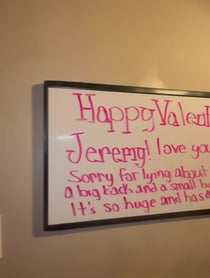 Happy Valen
Jeremy! love you
Sorry for lying about
a big back and a small b
It's so huge and has a